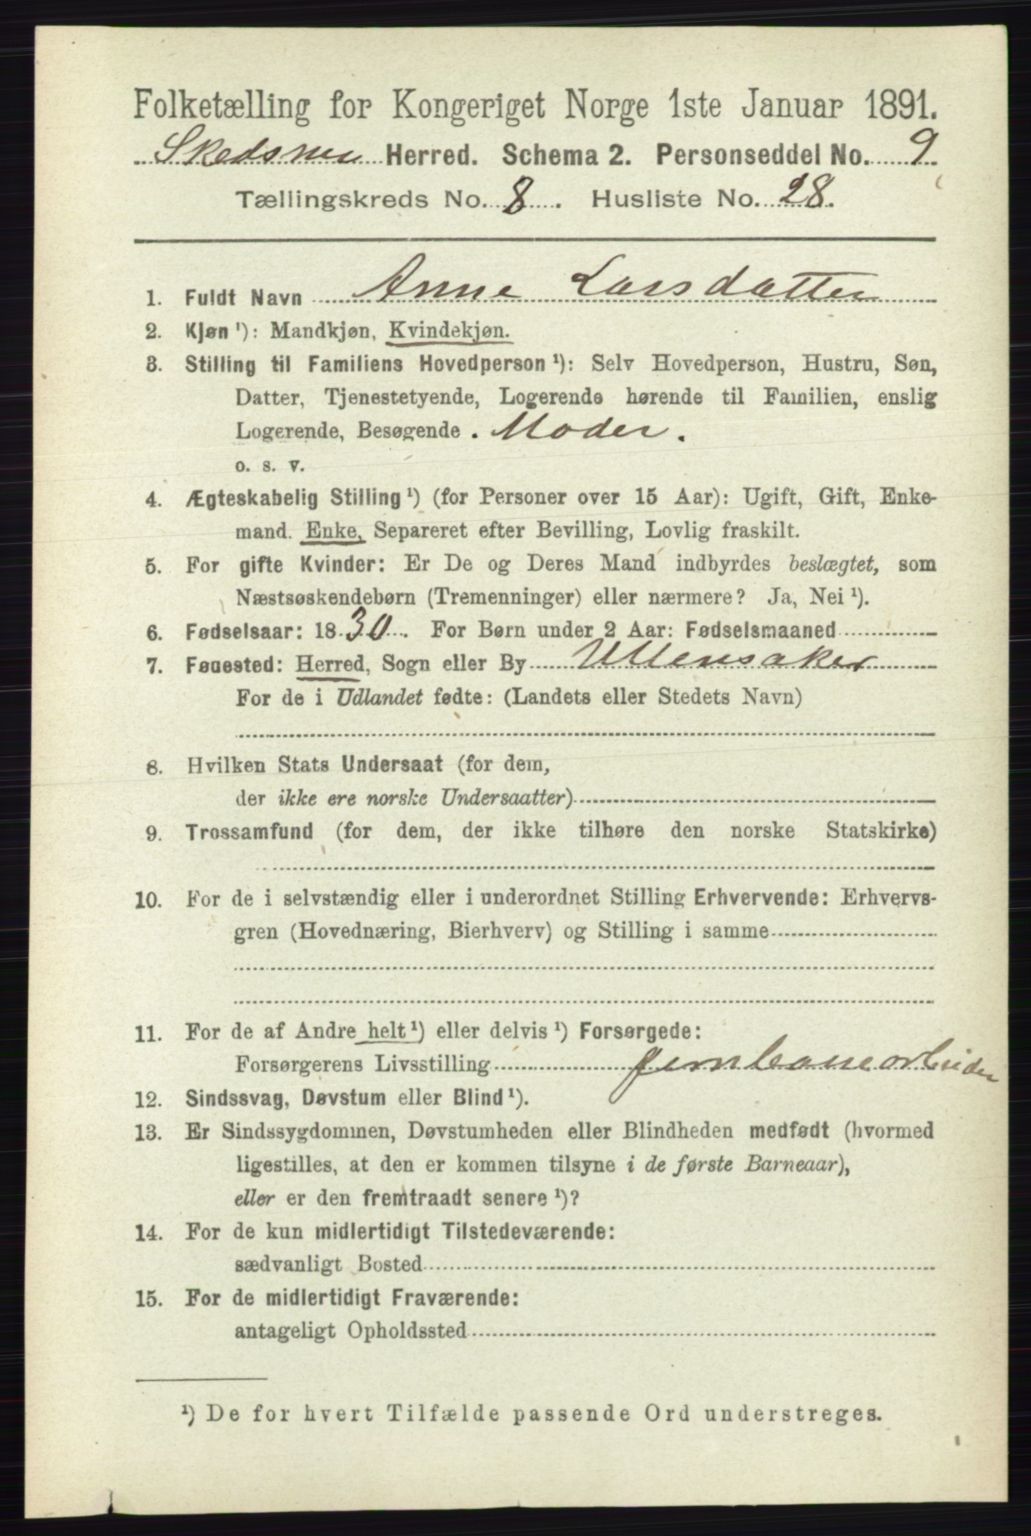 Folketælling for Kongeriget Norge 1ste Januar 1891.
Skedsmo Herred. Schema 2. Personseddel No. 9
Tællingskreds No. 8. Husliste No. 28.
1. Fuldt Navn Anne Larsdatter
2. Kjøn ¹): Mandkjøn, Kvindekjøn.
3. Stilling til Familiens Hovedperson ¹): Selv Hovedperson, Hustru, Søn,
Datter, Tjenestetyende, Logerende hørende til Familien, enslig
Logerende, Besøgende. Moder.
o. s. v.
4. Ægteskabelig Stilling ¹) (for Personer over 15 Aar): Ugift, Gift, Enke-
mand. Enke, Separeret efter Bevilling, Lovlig fraskilt.
5. For gifte Kvinder: Er De og Deres Mand indbyrdes beslægtet, som
Næstsøskendebørn (Tremenninger) eller nærmere? Ja, Nei ¹).
6. Fødselsaar: 1830. For Børn under 2 Aar: Fødselsmaaned
7. Føuested: Herred, Sogn eller By Ullensaker
For de i Udlandet fødte: (Landets eller Stedets Navn)
8. Hvilken Stats Undersaat (for dem,
der ikke ere norske Undersaatter)
9. Trossamfund (for dem, der ikke tilhøre den norske Statskirke)
10. For de i selvstændig eller i underordnet Stilling Erhvervende: Erhvervs-
gren (Hovednæring, Bierhverv) og Stilling i samme
11. For de af Andre helt ¹) eller delvis ¹) Forsørgede:
Forsørgerens Livsstilling jernbanearbeider
12. Sindssvag, Døvstum eller Blind ¹).
13. Er Sindssygdommen, Døvstumheden eller Blindheden medfødt (hvormed
ligestilles, at den er kommen tilsyne i de første Barneaar),
eller er den fremtraadt senere ¹)?
14. For de kun midlertidigt Tilstedeværende:
sædvanligt Bosted
15. For de midlertidigt Fraværende:
antageligt Opholdssted
¹) De for hvert Tilfælde passende Ord understreges.